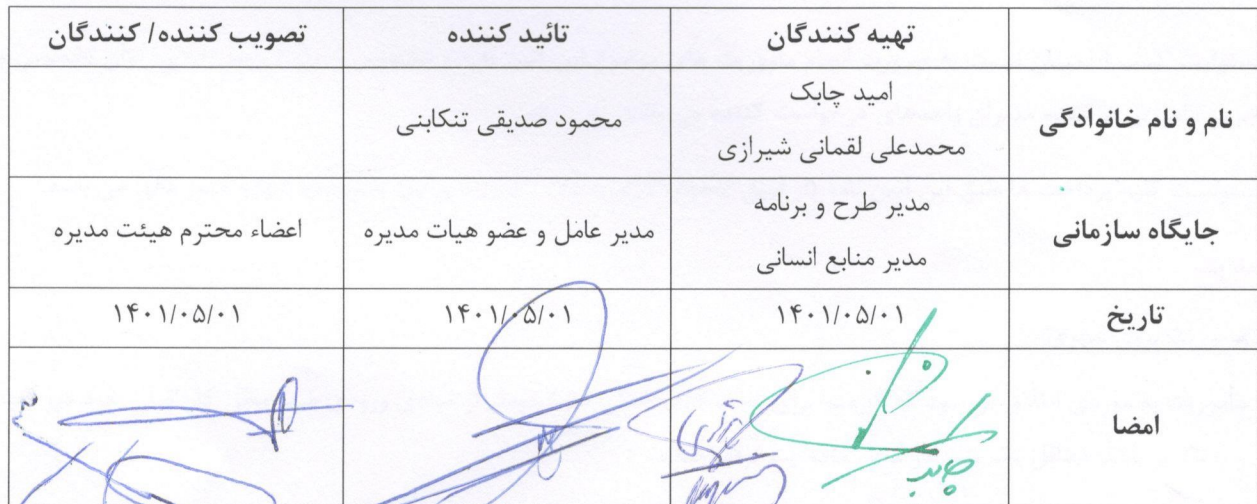 تهیه کنندگان تائید کننده تصویب کننده/ کنندگان
نام و نام خانوادگی
امید چابک
محمدعلی لقمانی شیرازی
محمود صدیقی تنکابنی
جایگاه سازمانی
مدیر طرح و برنامه
مدیر منابع انسانی
مدیر عامل و عضو هیات مدیره
اعضاء محترم هیئت مدیره
تاریخ ۱۴۰۱/۰۵/۰۱ ۱۴۰۱/۰۵/۰۱ ۱۴۰۱/۰۵/۰۱
امضا